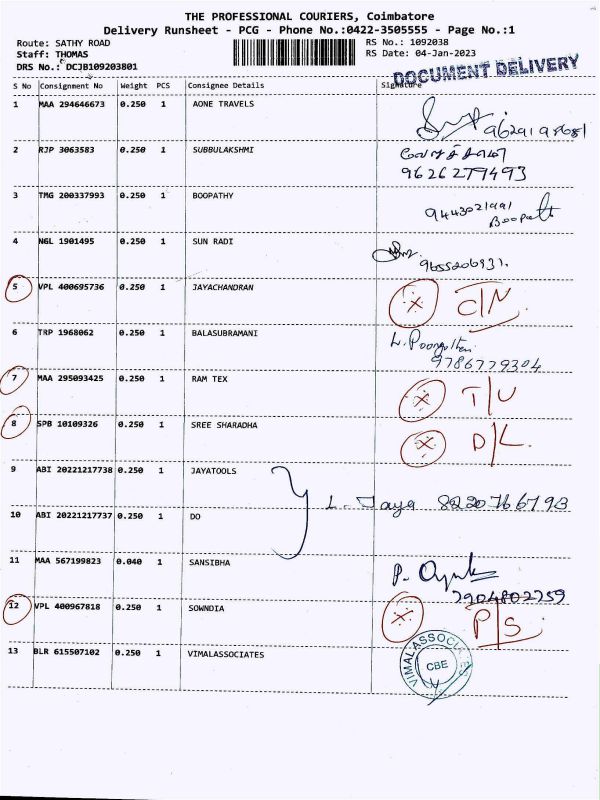 THE PROFESSIONAL COURIERS, Coimbatore
Delivery Runsheet - PCG - Phone No.:0422-3505555 - Page No.:1
Route: SATHY ROAD RS No.: 1092038
Staff: THOMAS RS Date: 04-Jan-2023
DRS No.: DCJB109203801
DOCUMENT DELIVERY
S No Consignment No Weight PCS Consignee Details Signature
1 MAA 294646673 0.250 1 AONE TRAVELS
2 RJP 3063583 0.250 1 SUBBULAKSHMI
9626279493
3 TMG 200337993 0.250 1 BOOPATHY 9443021991
Boopath
4 NGL 1901495 0.250 1 SUN RADI
9655206931.
5 VPL 400695736 0.250 1 JAYACHANDRAN C/N
6 TRP 1968062 0.250 1 BALASUBRAMANI
9786779304
7 MAA 295093425 0.250 1 RAM TEX T/U
8 SPB 10109326 0.250 1 SREE SHARADHA D/L.
9 ABI 20221217738 0.250 1 JAYATOOLS
L. Jaya 8220766793
10 ABI 20221217737 0.250 1 DO
11 MAA 567199823 0.040 1 SANSIBHA
7904802759
12 VPL 400967818 0.250 1 SOWNDIA P/S
13 BLR 615507102 0.250 1 VIMALASSOCIATES
VIMAL ASSOCIATES
CBE